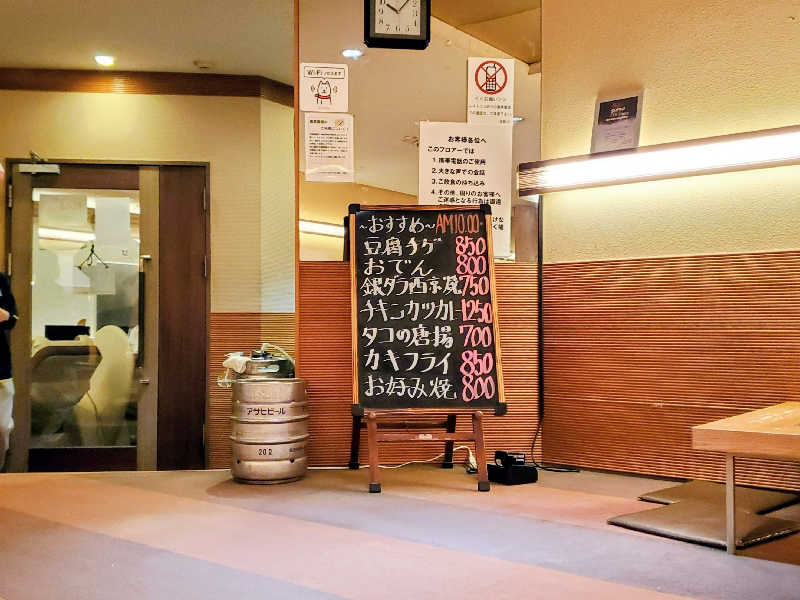 Wi-Fi
お客様各位へ
このフロアーでは
1. 携帯電話のご使用
2. 大きな声での会話
3. ご飲食の持ち込み
4. その他、周りのお客様へ
ご迷惑となる行為は御遠
~おすすめ~ AM10:00-
豆腐チゲ 850
おでん 800
銀ダラ西京焼 750
チキンカツカレー 1250
タコの唐揚 700
カキフライ 850
お好み焼 800
アサヒビール
20ℓ